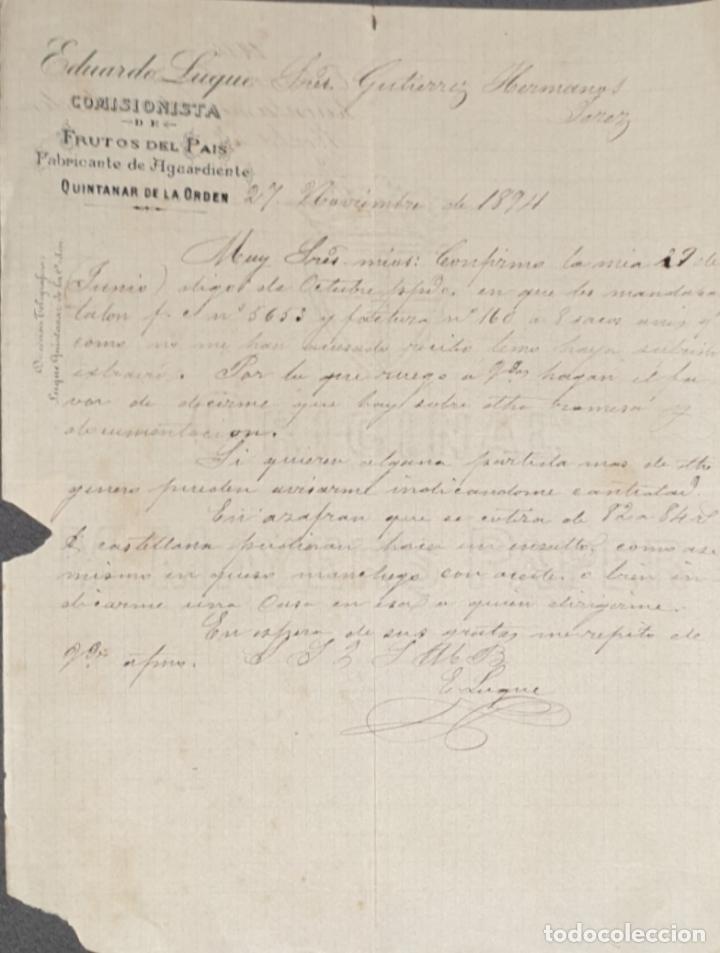 Eduardo Luque
COMISIONISTA
DE
FRUTOS DEL PAIS
Fabricante de Aguardiente
QUINTANAR DE LA ORDEN
Sres. Gutierrez Hermanos
Jerez
27 Noviembre de 1894
Muy Sres. mios: Confirmo la mia 29 de
(Junio) digo de Octubre ppdo. en que les mandaba
talon f. c. nº 5653 y factura nº 160 a 8 sacos anis y
como no me han acusado recibo temo haya sufrido
extravio. Por lo que ruego a Vdes hagan el fa
vor de decirme que hay sobre dha remesa y
documentacion.
Si quieren alguna partida mas de dho
genero pueden avisarme indicandome cantidad.
En azafran que se cotiza de 82 a 84
castellana pudieran hacer un ensallo, como asi
mismo en queso manchego con aceite, o bien in
dicarme una Casa en esa a quien dirigirme.
En espera de sus gratas me repito de
Vdes afmo. S S Q S M B
E Luque
Luque Quintanar de la Orden
todocoleccion.net